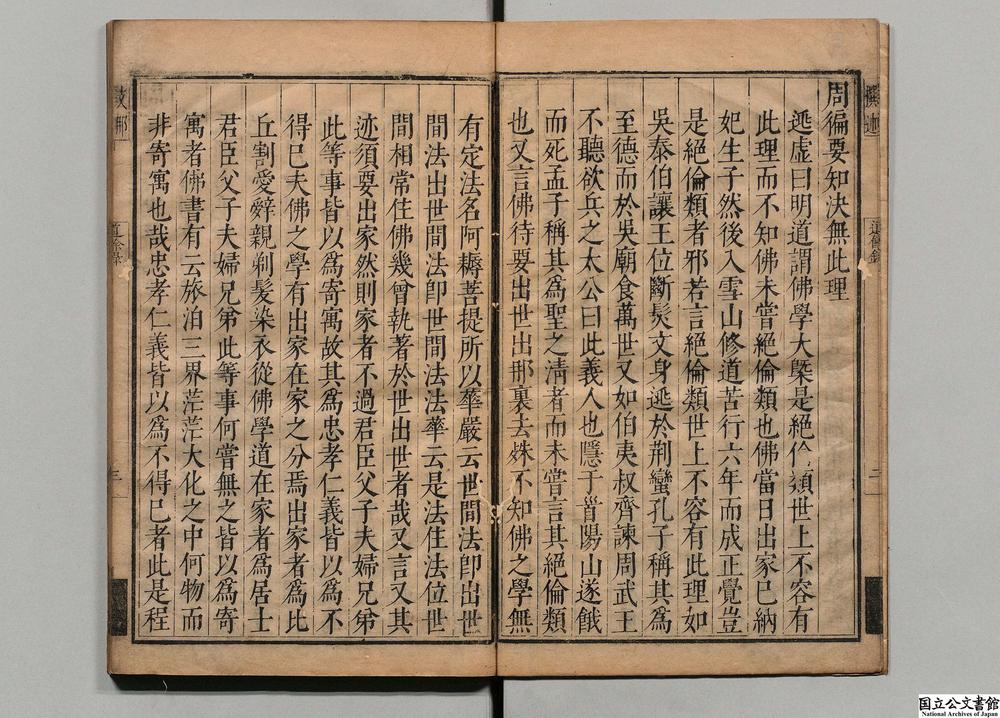 周徧要知決無此理
逃虛曰明道謂佛學大槩是絕倫類世上不容有
此理而不知佛未嘗絕倫類也佛當日出家已納
妃生子然後入雪山修道苦行六年而成正覺豈
是絕倫類者邪若言絕倫類世上不容有此理如
吳泰伯讓王位斷髮文身逃於荆蠻孔子稱其爲
至德而於吳廟食萬世又如伯夷叔齊諫周武王
不聽欲兵之太公曰此義人也隱于首陽山遂餓
而死孟子稱其爲聖之清者而未嘗言其絕倫類
也又言佛待要出世出那裏去殊不知佛之學無
有定法名阿耨菩提所以華嚴云世間法卽出世
間法出世間法卽世間法法華云是法住法位世
間相常住佛幾曾執著於世出世者哉又言又其
迹須要出家然則家者不過君臣父子夫婦兄弟
此等事皆以爲寄寓故其爲忠孝仁義皆以爲不
得已夫佛之學有出家在家之分焉出家者爲比
丘割愛辭親剃髮染衣從佛學道在家者爲居士
君臣父子夫婦兄弟此等事何嘗無之皆以爲寄
寓者佛書有云旅泊三界茫茫大化之中何物而
非寄寓也哉忠孝仁義皆以爲不得已者此是程
道餘錄
二
三
国立公文書館
National Archives of Japan